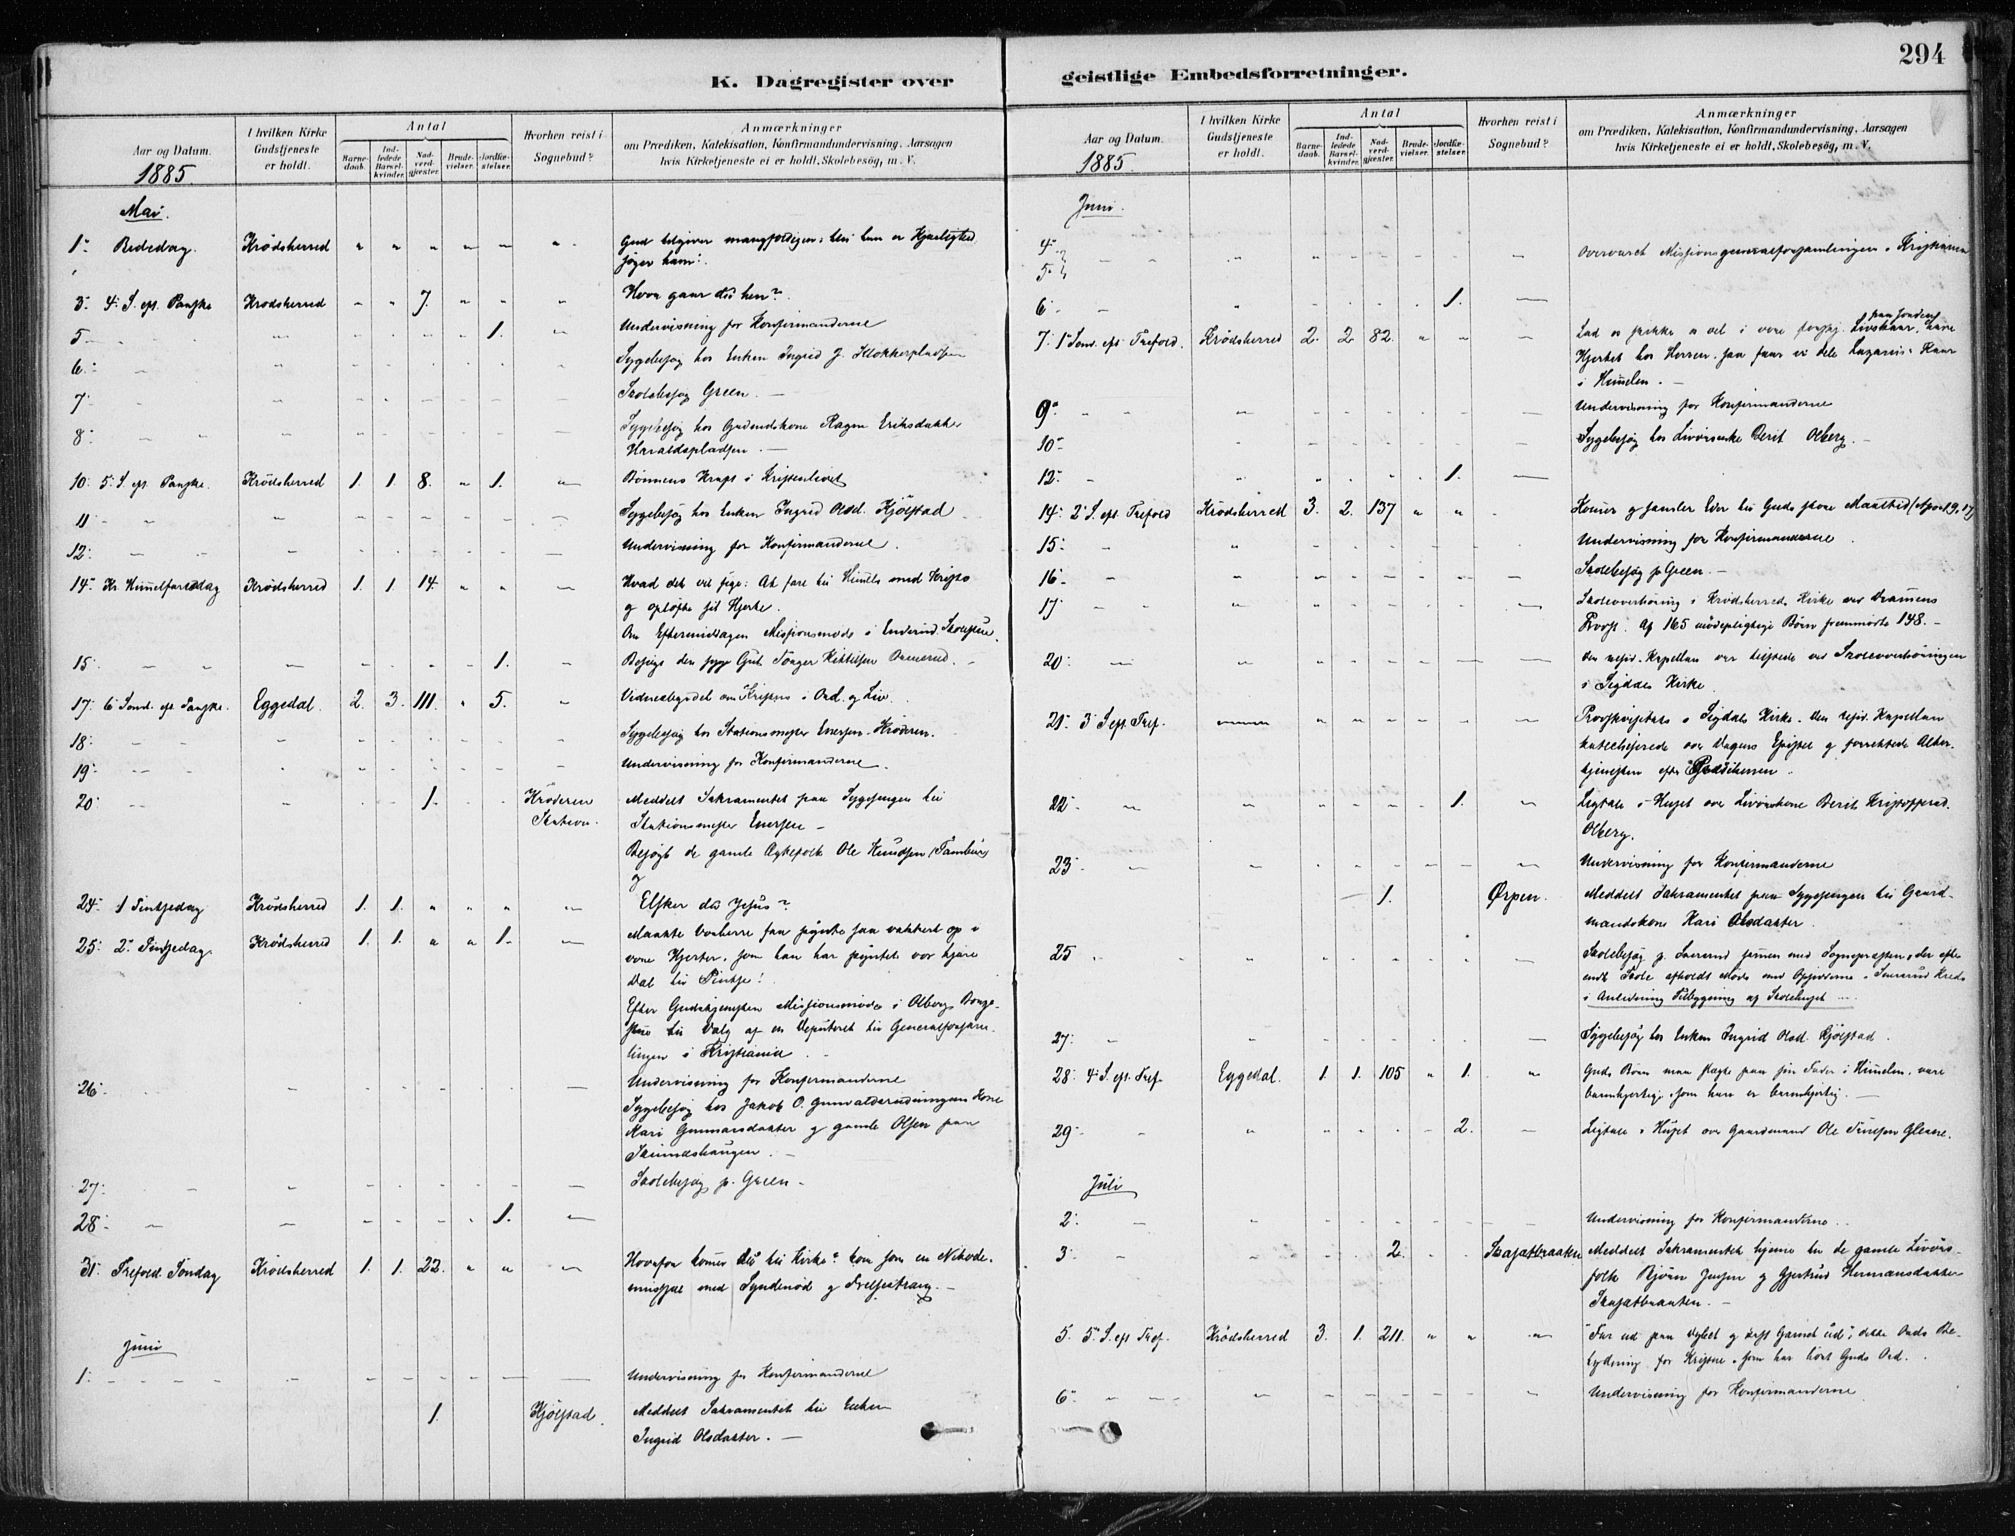 294
K. Dagregister over
geistlige Embedsforretninger.
Aar og Datum.
1885.
I hvilken Kirke Gudstjeneste er holdt.
Antal
Barnedaab.
Indledede Barselkvinder.
Nadverdgjester.
Brudevielser.
Jordfæstelser.
Hvorhen reist i Sognebud?
Anmærkninger
om Prædiken, Katekisation, Konfirmandundervisning, Aarsagen
hvis Kirketjeneste ei er holdt, Skolebesög, m. V.
Mai.
1 Bededag. Krødsherred " " " " " " Gud tilgiver mangfoldigen; thi han er Kjærlighed
søger ham!
3. 4. S. eft. Paaske Krødsherred " " 7. " " " Hvor gaar du hen?
5 1. Undervisning for Konfirmanderne
6. Sygebesøg hos Enken Ingrid J. Klokkerpladsen
7 Skolebesøg Green.
8 Sygebesøg hos Ragne Eriksdatter
Haraldspladsen.
10. 5. S. eft. Paaske. Krødsherred 1. 1. 8. " 1. Bønnens Kraft i Kristenlivet
11 Sygebesøg hos Enken Ingrid Olsd. Kjölstad
12: Undervisning for Konfirmanderne.
14 Kr. Himmelfartsdag Krødsherred 1. 1. 14. " " Hvad det vil sige: At fare til Himmels med Kristo
og opløfte sit Hjerte.
Om Eftermiddagen Missionsmøde i Skolestue.
15 1. Besøgt den syge Gut
17: 6 Sønd. eft. Paaske. Eggedal. 2. 3. 111. " 5. " Vidnesbyrdet om Kristus i Ord og Liv.
18: Sygebesøg hos Stationsmester Enersen. Krøderen.
19: Undervisning for Konfirmanderne.
20: 1. Krøderen Station. Meddelt Sakramentet paa Sygesengen til
Stationsmester Enersen
Besøgt de gamle Ægtefolk Ole Knudsen (Tambur)
og
24: 1 Pintsedag Krødsherred 1. 1. " " " Elsker du Jesus?
25: 2. Pintsedag. Krødsherred 1. 1. " " 1. Maatte Vorherre faa pynte saa vakkert op i
vore Hjerter, som han har pyntet vor kjære
Dal til Pintse!
Efter Gudstjenesten Missionsmøde i Olberg
til Valg af en Deputeret til Generalforsam-
lingen i Kristiania.
26: Undervisning for Konfirmanderne
Sygebesøg hos Jakob O. Kone
Kari Gunnarsdatter og gamle Olsen paa
27: Skolebesøg p. Green.
28: 1.
31: Trefold. Søndag Krødsherred 1. 1. 22. " " Hvorfor kommer du til Kirke? kom som en Nikode-
mussjæl med Syndenød og Frelsestrang.
Juni
1: Undervisning for Konfirmanderne
1. Kjölstad. Meddelt Sakramentet til Enken
Ingrid Olsdatter.
Aar og Datum.
1885.
I hvilken Kirke Gudstjeneste er holdt.
Antal
Barnedaab.
Indledede Barselkvinder.
Nadverdgjester.
Brudevielser.
Jordfæstelser.
Hvorhen reist i Sognebud?
Anmærkninger
om Prædiken, Katekisation, Konfirmandundervisning, Aarsagen
hvis Kirketjeneste ei er holdt, Skolebesög, m. V.
Juni.
4
5 Overværet Missionsgeneralforsamlingen i Kristiania
6 1.
7. 1 Sønd. eft. Trefold. Krødsherred 2. 2. 82. " " Lad os skikke os vel i vore Livskaar, have
Hjertet hos Herren, saa faar vi dele Lazarus's Kaar
i Himmelen.
9 Undervisning for Konfirmanderne
10 Sygebesøg hos Berit Olberg.
12 1.
14: 2 S. eft. Trefold Krødsherred 3. 2. 137 " " Kommer og samler Eder til Guds store Maaltid
15: Undervisning for Konfirmanderne.
16 Skolebesøg p. Green.
17 Skoleoverhøring i Krødsherreds Kirke ved Dramens
Provst. Af 165 mødepligtige Børn fremmødte 148.
20: Den resid. Kapellan var tilstede ved Skoleoverhøringen
i Sigdals Kirke.
21: 3 S. eft. Tref. Provstevisitats i Sigdals Kirke. Den resid. Kapellan
katechiserede over Dagens Epistel og forrettede Alter-
tjenesten efter Prædikenen.
22: 1. Ligtale i Huset over Berit
Olberg.
23 Undervisning for Konfirmanderne
1. Ørpen. Meddelt Sakramentet paa Sygesengen til Gaard-
mandskone Kari Olsdatter
25 Skolebesøg p. sammen med Sognepræsten, der efter
endt Skole afholdt Møde med Kreds
i Anledning Tilbygning af Skolehuset
27: Sygebesøg hos Enken Ingrid Olsd. Kjölstad.
28: 4 S. eft. Tref. Eggedal. 1. 1. 105 " 1. Guds Børn maa slægte paa sin Fader i Himmelen, være
barmhjertig, som han er barmhjertig.
29: 2. Ligtale i Huset over Gaardmand Ole
Juli
2: Undervisning for Konfirmanderne.
3: 2. Meddelt Sakramentet hjemme til de gamle
folk Bjørn Jensen og Gjertrud Hermansdatter
5. 5. S. eft. Tref. Krødsherred 3. 1. 211. " " "Far ud paa Dybet og kast Garnet ud"; dette Ords Be-
tydning for Kristne, som har hørt Guds Ord.
6 Undervisning for Konfirmanderne